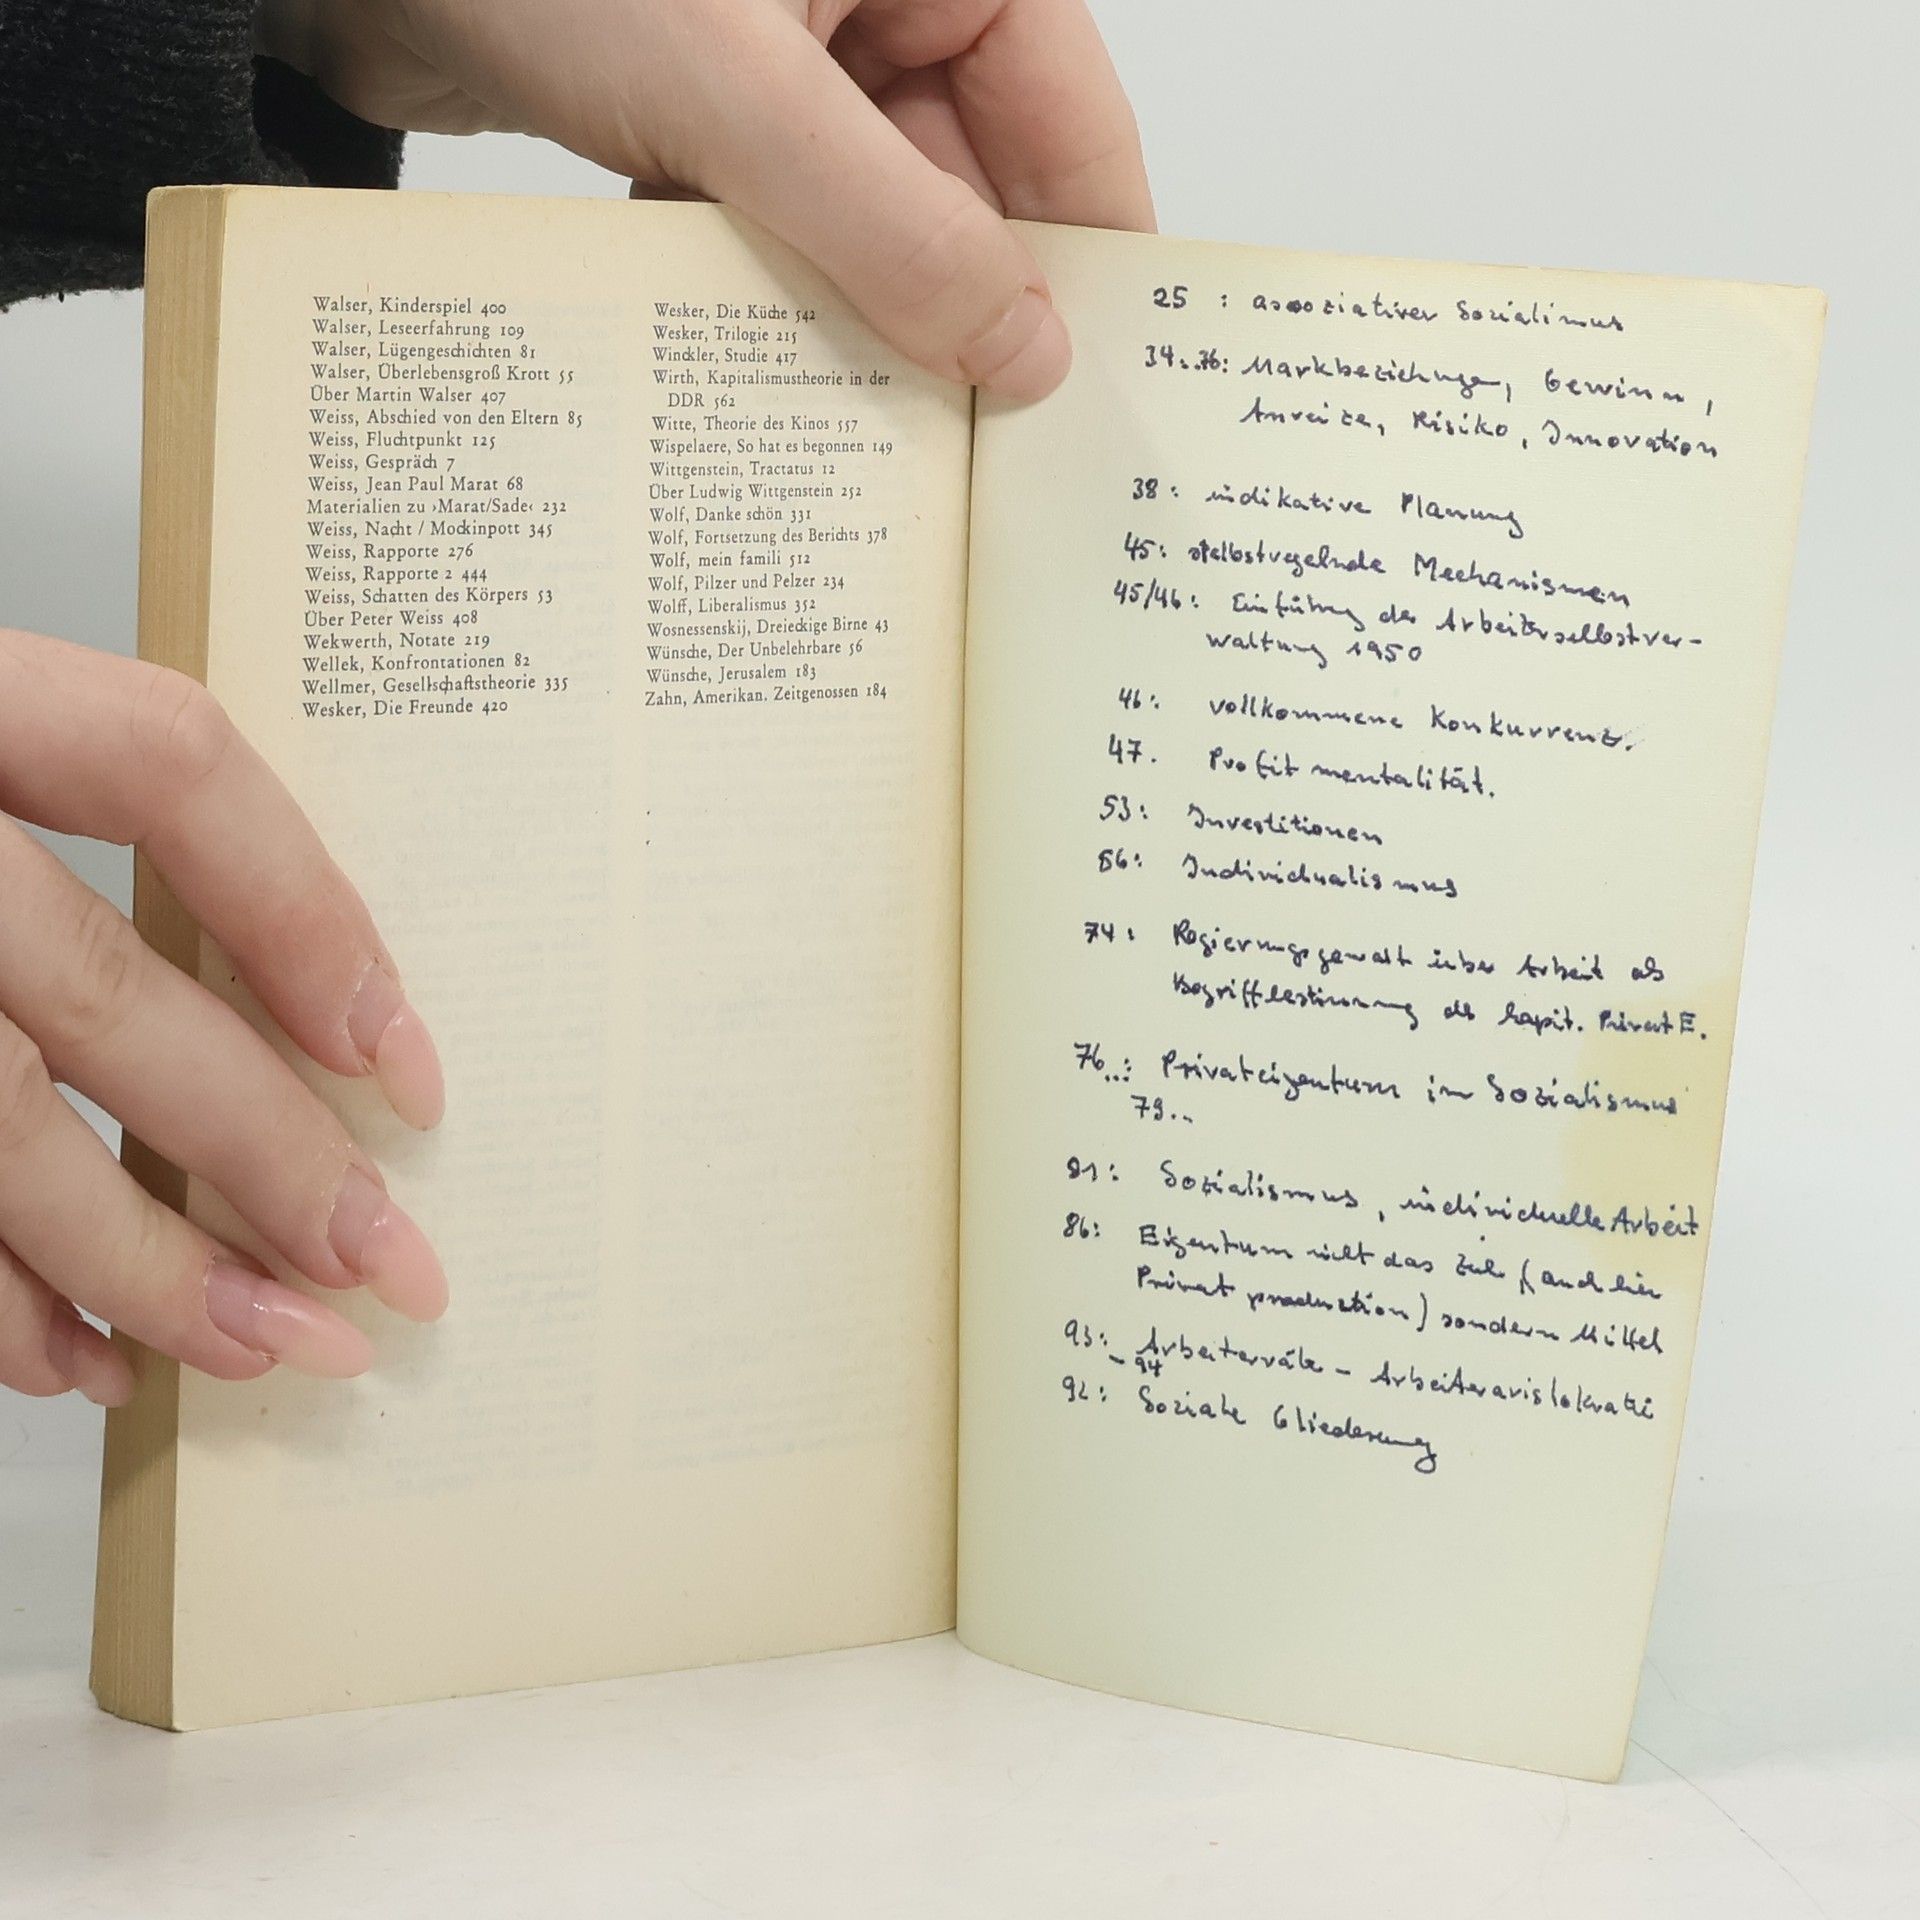 Walser, Kinderspiel 400
Walser, Leseerfahrung 109
Walser, Lügengeschichten 81
Walser, Überlebensgroß Krott 55
Über Martin Walser 407
Weiss, Abschied von den Eltern 85
Weiss, Fluchtpunkt 125
Weiss, Gespräch 7
Weiss, Jean Paul Marat 68
Materialien zu ›Marat/Sade‹ 232
Weiss, Nacht / Mockinpott 345
Weiss, Rapporte 276
Weiss, Rapporte 2 444
Weiss, Schatten des Körpers 53
Über Peter Weiss 408
Wekwerth, Notate 219
Wellek, Konfrontationen 82
Wellmer, Gesellschaftstheorie 335
Wesker, Die Freunde 420
Wesker, Die Küche 542
Wesker, Trilogie 215
Winckler, Studie 417
Wirth, Kapitalismustheorie in der
DDR 562
Witte, Theorie des Kinos 557
Wispelaere, So hat es begonnen 149
Wittgenstein, Tractatus 12
Über Ludwig Wittgenstein 252
Wolf, Danke schön 331
Wolf, Fortsetzung des Berichts 378
Wolf, mein famili 512
Wolf, Pilzer und Pelzer 234
Wolff, Liberalismus 352
Wosnessenskij, Dreieckige Birne 43
Wünsche, Der Unbelehrbare 56
Wünsche, Jerusalem 183
Zahn, Amerikan. Zeitgenossen 184
25 : assoziativer Sozialismus
34..36: Markbeziehungen, Gewinn,
Anreize, Risiko, Innovation
38: indikative Planung
45: selbstregelnde Mechanismen
45/46: Einführung der Arbeiterselbstver-
waltung 1950
46: vollkommene Konkurrenz.
47. Profitmentalität.
53: Investitionen
56: Individualismus
74: Regierungsgewalt über Arbeit als
Begriffbestimmung des kapit. Privat E.
76..: Privateigentum im Sozialismus
79..
81: Sozialismus, individuelle Arbeit
86: Eigentum nicht das Ziel (auch hier
Privatproduktion) sondern Mittel
93: Arbeiterräte - Arbeiteraristokratie
- 94
92: Soziale Gliederung